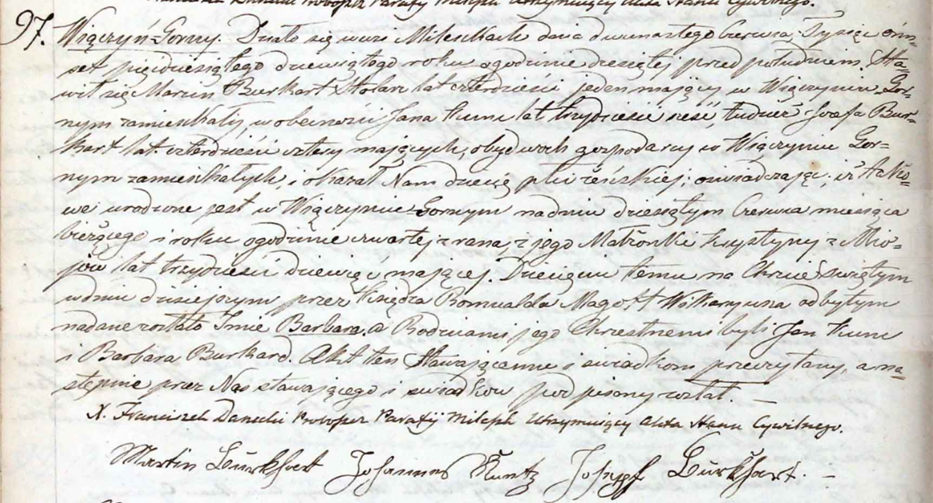 97. Wiączyń Gorny. Działo się we wsi Mileszkach dnia dwunastego Czerwca, Tysiąc óm=
set pięćdziesiątego dziewiątego roku o godzinie dziesiątej przed południem. Sta=
wił się Marcin Burkart Stolarz lat czterdzieści jeden mający w Wiączyniu Gor=
nym zamieszkały, w obecności Jana Kunc lat trzydzieści sześć, tudzież Jozefa Bur=
kart lat czterdzieści cztery mających, obydwóch gospodarzy w Wiączyniu Gor=
nym zamieszkałych i okazał Nam dziecię płci żeńskiej; oświadczając; iż tako=
we urodzone jest w Wiączyniu Gornym na dniu dziesiątym Czerwca miesiąca
bieżącego i roku o godzinie czwartej z rana, z jego Małżonki Krystyny z Mio=
jów lat trzydzieści dziewięć mającej. Dziecięciu temu na Chrzcie świętym
w dniu dzisiejszym przez Księdza Romualda Magott Wikaryusza odbytym
nadane zostało Imie Barbara, a Rodzicami jego Chrzestnemi byli Jan Kunc
i Barbara Burkard. Akt ten stawającemu i świadkom przeczytany, a na=
stępnie przez Nas stawającego i świadków podpisany został. —
X. Franciszek Danecki Proboszcz Parafij Mileszk Utrzymujący Akta Stanu Cywilnego.
Martin Burkhert Johannes Kuntz Joseph Burkhart. —